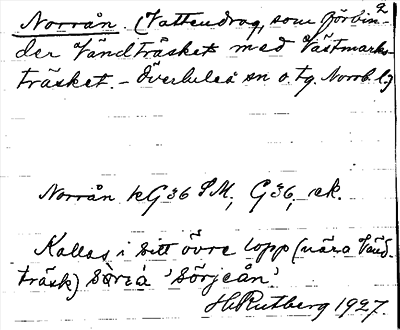 Norrån. (Vattendrag, som förbin-
der Vändträsket med Västmarks-
träsket. - Överluleå sn o. tg. Norrb. l.)
Norrån kG36 SM, G36, ek.
Kallas i sitt övre lopp (nära Vänd-
träsk) sørıá 'Sörjeån'.
H. Rutberg 1927.